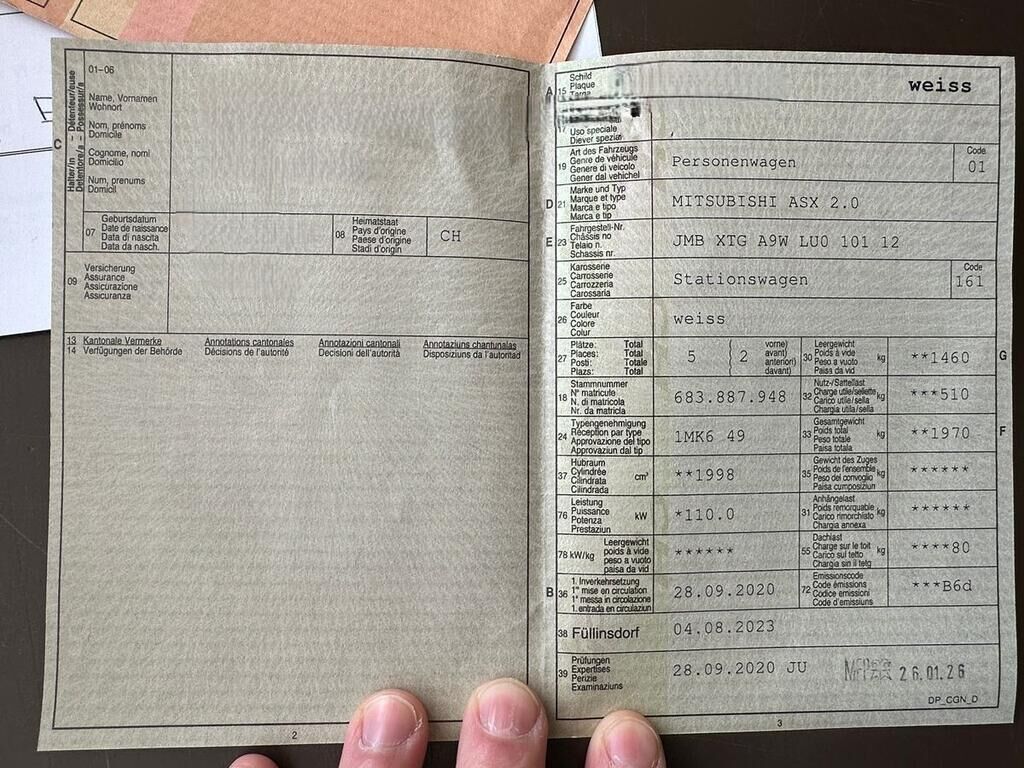 Halter/in - Détenteur/euse
Detentore/a - Possessur/a
C
01–06
Name, Vornamen
Wohnort
Nom, prénoms
Domicile
Cognome, nomi
Domicilio
Num, prenums
Domicil
07
Geburtsdatum
Date de naissance
Data di nascita
Data da nasch.
08
Heimatstaat
Pays d'origine
Paese d'origine
Stadi d'origin
CH
09
Versicherung
Assurance
Assicurazione
Assicuranza
13 Kantonale Vermerke Annotations cantonales Annotazioni cantonali Annotaziuns chantunalas
14 Verfügungen der Behörde Décisions de l'autorité Decisioni dell'autorità Disposiziuns da l'autoritad
2
A 15
Schild
Plaque
Targa
weiss
17
Uso speciale
Diever spezial
19
Art des Fahrzeugs
Genre de véhicule
Genere di veicolo
Gener dal vehichel
Personenwagen
Code
01
D 21
Marke und Typ
Marque et type
Marca e tipo
Marca e tip
MITSUBISHI ASX 2.0
E 23
Fahrgestell-Nr.
Châssis no
Telaio n.
Schassis nr.
JMB XTG A9W LU0 101 12
25
Karosserie
Carrosserie
Carrozzeria
Carossaria
Stationswagen
Code
161
26
Farbe
Couleur
Colore
Colur
weiss
27
Plätze: Total
Places: Total
Posti: Totale
Plazs: Total
5 { 2
vorne)
avant)
anteriori)
davant)
30
Leergewicht
Poids à vide
Peso a vuoto
Paisa da vid
kg
**1460
G
18
Stammnummer
N° matricule
N. di matricola
Nr. da matricla
683.887.948
32
Nutz-/Sattellast
Charge utile/sellette
Carico utile/sella
Chargia utila/sella
kg
***510
24
Typengenehmigung
Réception par type
Approvazione del tipo
Approvaziun dal tip
1MK6 49
33
Gesamtgewicht
Poids total
Peso totale
Paisa totala
kg
**1970
F
37
Hubraum
Cylindrée
Cilindrata
Cilindrada
cm³
**1998
35
Gewicht des Zuges
Poids de l'ensemble
Peso del convoglio
Paisa cumposiziun
kg
******
76
Leistung
Puissance
Potenza
Prestaziun
kW
*110.0
31
Anhängelast
Poids remorquable
Carico rimorchiato
Chargia annexa
kg
******
78 kW/kg
Leergewicht
poids à vide
peso a vuoto
paisa da vid
******
55
Dachlast
Charge sur le toit
Carico sul tetto
Chargia sin il tetg
kg
****80
B 36
1. Inverkehrsetzung
1re mise en circulation
1a messa in circolazione
1. entrada en circulaziun
28.09.2020
72
Emissionscode
Code émissions
Codice emissioni
Code d'emissiuns
***B6d
38 Füllinsdorf
04.08.2023
39
Prüfungen
Expertises
Perizie
Examinaziuns
28.09.2020 JU
26.01.26
DP_CGN_D
3